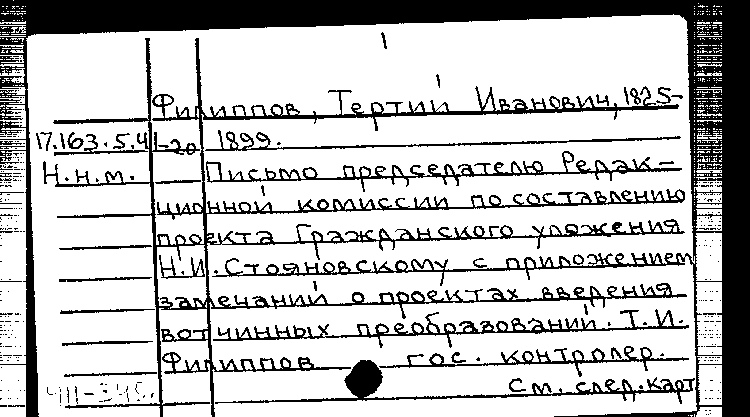 1
Филиппов, Тертий Иванович, 1825-
17.163.5.4 1-20 1899.
Н.н.м. Письмо председателю Редак-
ционной комиссии по составлению
проекта Гражданского уложения
Н.И. Стояновскому с приложением
замечаний о проектах введения
вотчинных преобразований. Т.И.
Филиппов гос. контролер.
См. след. карт